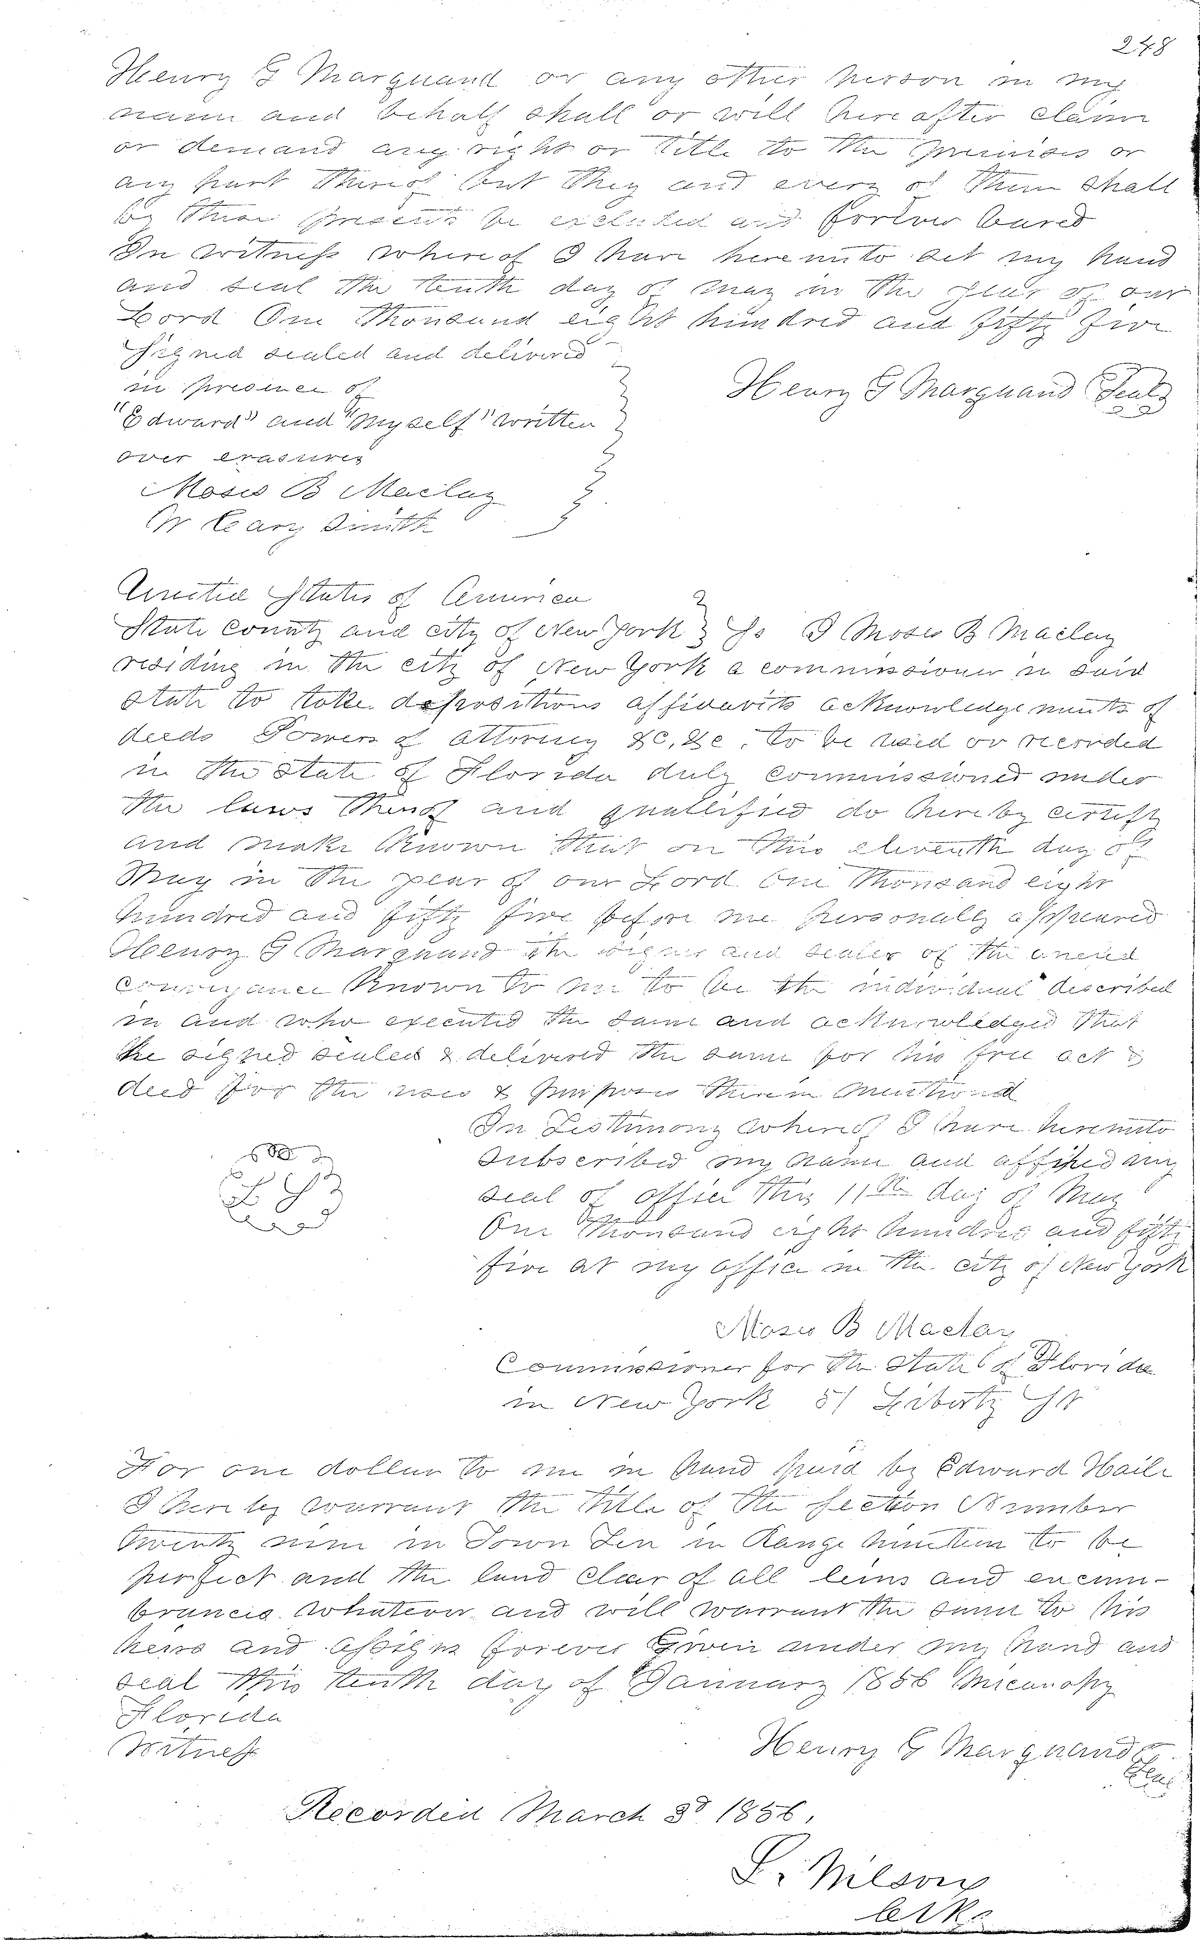 248
Henry G Marquand or any other person in my
name and behalf shall or will hereafter claim
or demand any right or title to the premises or
any part thereof but they and every of them shall
by these presents be excluded and forever bared
In witness whereof I have hereunto set my hand
and seal the tenth day of may in the year of our
Lord One thousand eight hundred and fifty five
Signed sealed and delivered
in presence of
Henry G Marquand Seal
"Edward" and "myself" written
over erasures
Moses B Maclay
W Cary Smith
United States of America
State County and city of New York } Ss I Moses B Maclay
residing in the city of New York a commissioner in said
state to take depositions affidavits acknowledgements of
deeds Powers of attorney &c, &c, to be used or recorded
in the state of Florida duly commissioned under
the laws thereof and quallified do hereby certify
and make known that on this eleventh day of
May in the year of our Lord One thousand eight
hundred and fifty five before me personally appeared
Henry G Marquand the signer and sealer of the anexed
conveyance known to me to be the individual described
in and who executed the same and acknowledged that
he signed sealed & delivered the same for his free act &
deed for the uses & purposes therein mentioned
In Testimony whereof I have hereunto
subscribed my name and affixed my
seal of office this 11th day of May
One thousand eight hundred and fifty
five at my office in the city of New York
L S
Moses B Maclay
Commissioner for the State of Florida
in New York 51 Liberty St
For one dollar to me in hand paid by Edward Haile
I hereby warrant the title of the section Number
twenty nine in Town Ten in Range nineteen to be
perfect and the land clear of all leins and encum-
brances whatever and will warrant the same to his
heirs and assigns forever Given under my hand and
seal this tenth day of January 1856 Micanopy
Florida
Witness
Henry G Marquand Seal
Recorded March 3d 1856,
L. Wilson
Clk.